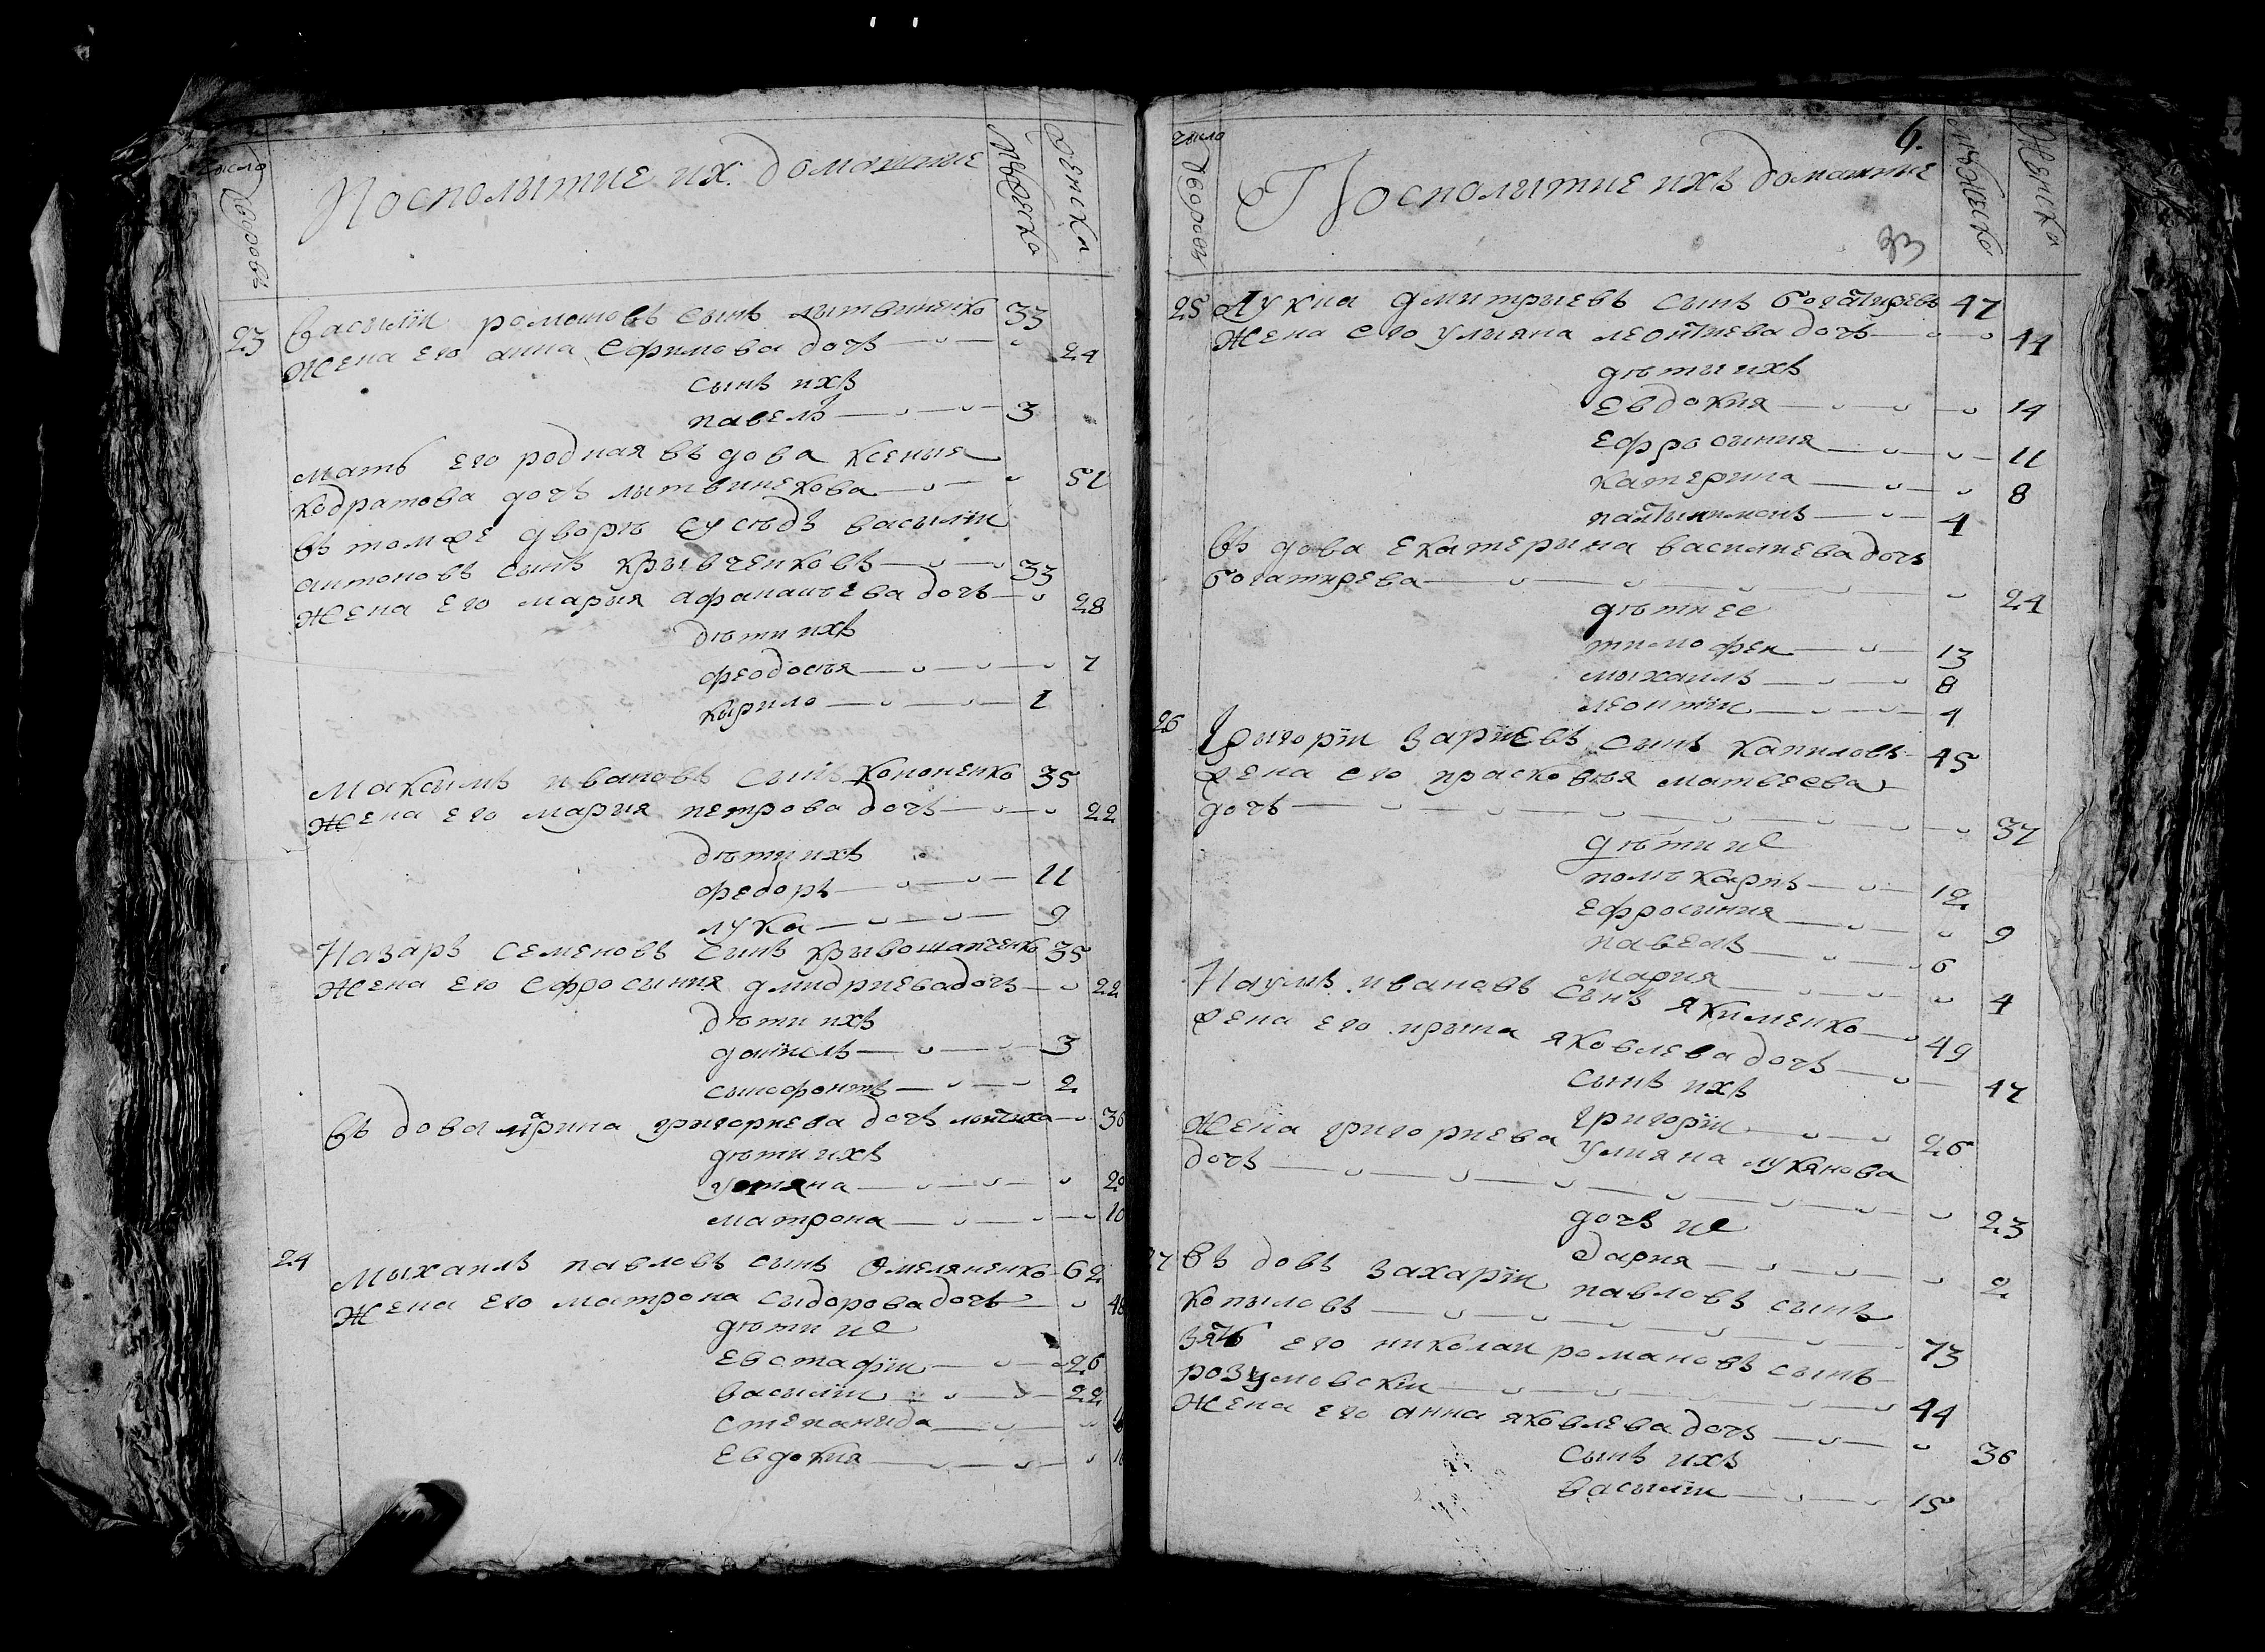 число
дворовъ
Посполытие их домашние
мужеска
женска
23 Василїи романовъ сынъ лытвиненко 33
Жена его анна Ефимова дочь 24
сынъ ихъ
павелъ 3
мать его родная въдова ксения
кодратова дочъ литвинекова 51
въ томже дворѣ сусѣдъ василїи
антоновъ сынъ крывченковъ 33
Жена его мария афанасъева дочъ 28
дѣти ихъ
феодосъя 7
кырило 1
Макъсымъ ивановъ сынъ Кононенко 35
Жена его мария петрова дочъ 22
дѣти ихъ
федоръ 11
лука 9
Назаръ семеновъ сынъ крывошапченко 35
Жена его Ефросыния дмидриева дочъ 22
дѣти ихъ
данїилъ 3
сынофонтъ 2
Въдова ирина григориева дочъ 36
дѣти ихъ
устяна 20
матрона 10
24 Мыхаилъ павловъ сынъ Омеляненко 62
Жена его матрона сыдорова дочъ
дѣти ие
Евстафїи 26
василїи 22
степанида
Евдокия
6.
число
дворовъ
Посполытие ихъ домашние
мужеска
Женска
33
25 Лукиа дмитриевъ сынъ богатиревъ 47
Жена его улияна леонтиева дочъ 44
дѣти ихъ
Евдокия 14
Ефросыния 11
катерина 8
пантылимонъ 4
Въдова екатерына василиева дочъ
богатирева 24
дѣти ее
тимофеи 13
мыхаилъ 8
леонтїи 4
26 Григорїи зариевъ сынъ капиловъ 45
жена его прасковъя матвеева
дочъ 37
дѣти ие
полѣкарпъ 12
Ефросыния 9
павелъ 6
мария 4
Наумъ ивановъ сынъ якименко 49
жена его ирина яковлева дочъ 47
сынъ ихъ
григорїи 26
Жена григориева улияна лукянова
дочъ 23
дочъ ие
дария 2
27 Въдовъ захарїи павловъ сынъ
копыловъ 73
зять его николаи романовъ сынъ
розумовскїи 44
Жена его анна яковлева дочъ 36
сынъ ихъ
василїи 15